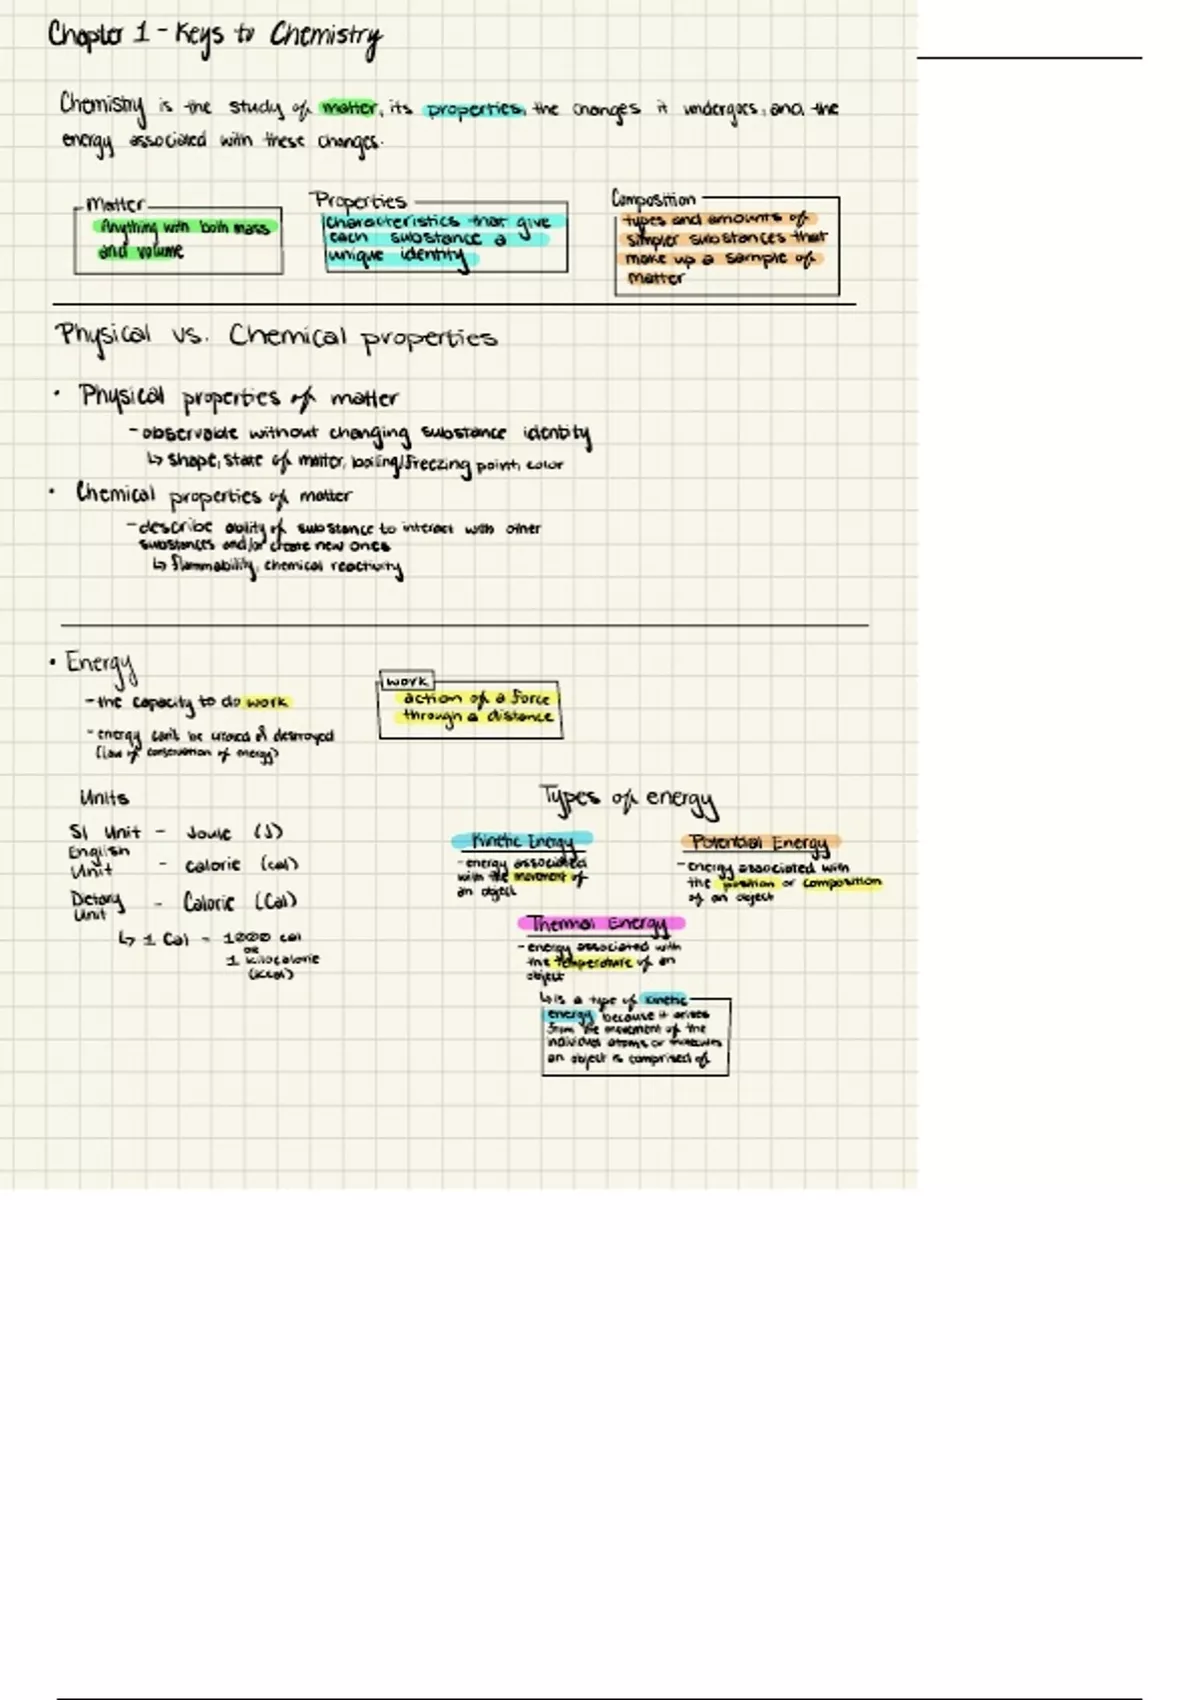 Chapter 1 - Keys to Chemistry
Chemistry is the study of matter, its properties, the changes it undergoes, and the
energy associated with these changes.
Matter
Anything with both mass
and volume
Properties
characteristics that give
each substance a
unique identity
Composition
types and amounts of
simpler substances that
make up a sample of
matter
Physical vs. Chemical properties
• Physical properties of matter
- observable without changing substance identity
↳ shape, state of matter, boiling/freezing point, color
• Chemical properties of matter
- describe ability of substance to interact with other
substances and/or create new ones
↳ flammability, chemical reactivity
• Energy
- the capacity to do work
- energy can't be created or destroyed
(law of conservation of energy)
work
action of a force
through a distance
Units
SI Unit - Joule (J)
English
Unit - calorie (cal)
Dietary
Unit - Calorie (Cal)
↳ 1 Cal = 1000 cal
or
1 kilocalorie
(kcal)
Types of energy
Kinetic Energy
- energy associated
with the movement of
an object
Potential Energy
- energy associated with
the position or composition
of an object
Thermal Energy
- energy associated with
the temperature of an
object
↳ is a type of kinetic
energy because it arises
from the movement of the
individual atoms or molecules
an object is comprised of